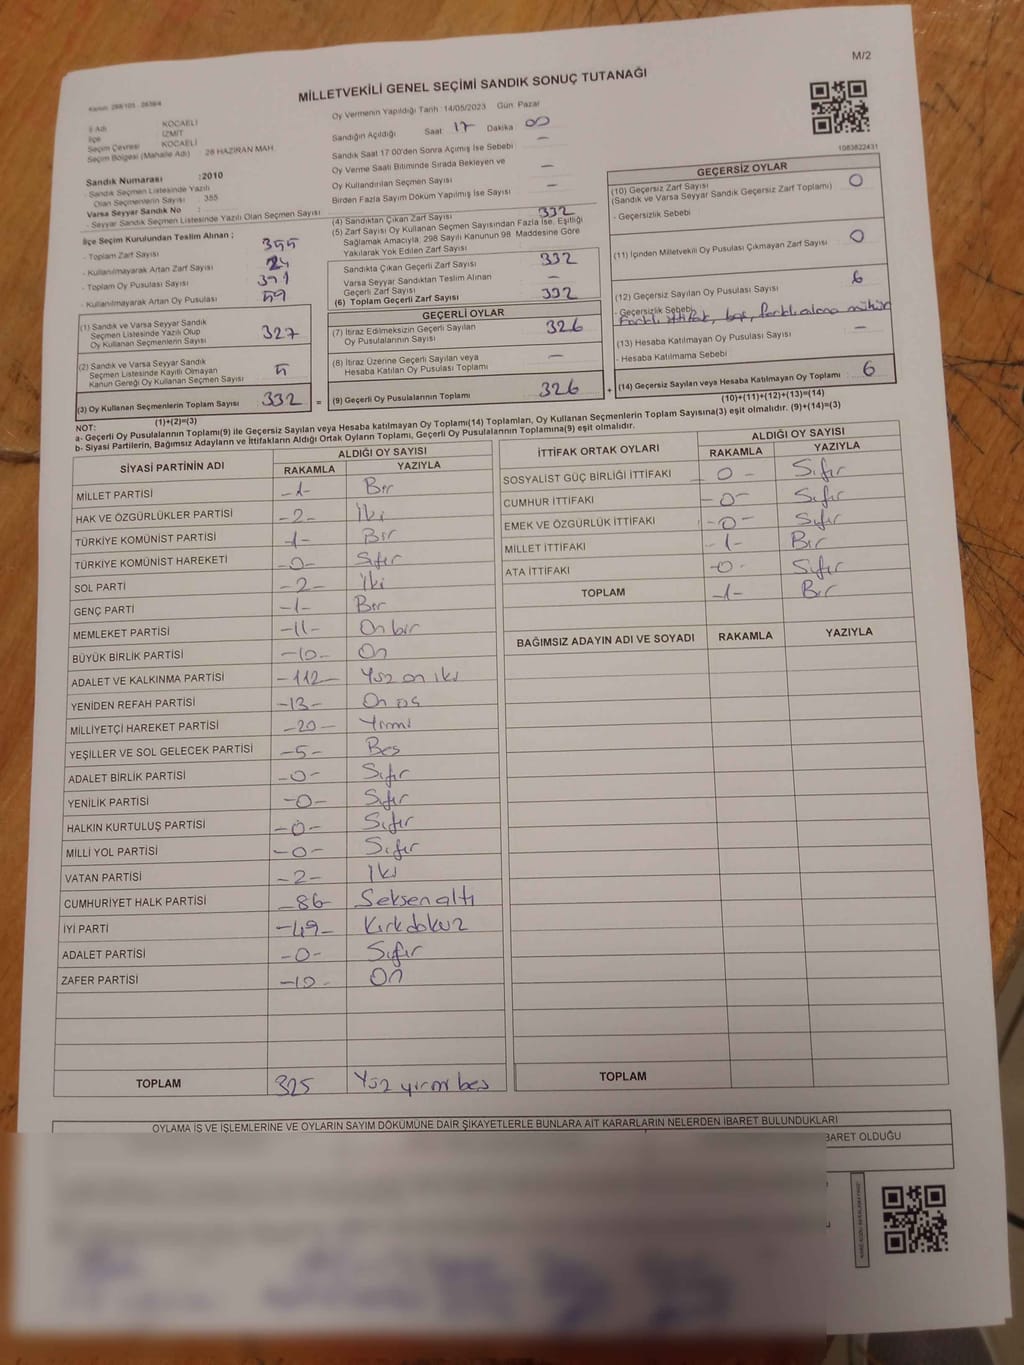 M/2
MİLLETVEKİLİ GENEL SEÇİMİ SANDIK SONUÇ TUTANAĞI
İl Adı KOCAELİ
İlçe İZMİT
Seçim Çevresi KOCAELİ
Seçim Bölgesi (Mahalle Adı) 28 HAZİRAN MAH.
Sandık Numarası :2010
- Sandık Seçmen Listesinde Yazılı
Olan Seçmenlerin Sayısı : 355
Varsa Seyyar Sandık No :
- Seyyar Sandık Seçmen Listesinde Yazılı Olan Seçmen Sayısı
İlçe Seçim Kurulundan Teslim Alınan ;
- Toplam Zarf Sayısı 355
- Kullanılmayarak Artan Zarf Sayısı 24
- Toplam Oy Pusulası Sayısı
- Kullanılmayarak Artan Oy Pusulası 59
(1) Sandık ve Varsa Seyyar Sandık
Seçmen Listesinde Yazılı Olup
Oy Kullanan Seçmenlerin Sayısı 327
(2) Sandık ve Varsa Seyyar Sandık
Seçmen Listesinde Kayıtlı Olmayan
Kanun Gereği Oy Kullanan Seçmen Sayısı 5
(3) Oy Kullanan Seçmenlerin Toplam Sayısı 332 =
(1)+(2)=(3)
Oy Vermenin Yapıldığı Tarih :14/05/2023 Gün: Pazar
Sandığın Açıldığı Saat 17 Dakika 00
Sandık Saat 17:00'den Sonra Açımış İse Sebebi —
Oy Verme Saati Bitiminde Sırada Bekleyen ve
Oy Kullandırılan Seçmen Sayısı —
Birden Fazla Sayım Döküm Yapılmış İse Sayısı —
(4) Sandıktan Çıkan Zarf Sayısı 332
(5) Zarf Sayısı Oy Kullanan Seçmen Sayısından Fazla İse, Eşitliği
Sağlamak Amacıyla, 298 Sayılı Kanunun 98. Maddesine Göre
Yakılarak Yok Edilen Zarf Sayısı —
Sandıkta Çıkan Geçerli Zarf Sayısı 332
Varsa Seyyar Sandıktan Teslim Alınan
Geçerli Zarf Sayısı —
(6) Toplam Geçerli Zarf Sayısı 332
GEÇERLİ OYLAR
(7) İtiraz Edilmeksizin Geçerli Sayılan
Oy Pusulalarının Sayısı 326
(8) İtiraz Üzerine Geçerli Sayılan veya
Hesaba Katılan Oy Pusulası Toplamı —
(9) Geçerli Oy Pusulalarının Toplamı 326 +
1083822431
GEÇERSİZ OYLAR
(10) Geçersiz Zarf Sayısı 0
(Sandık ve Varsa Seyyar Sandık Geçersiz Zarf Toplamı)
- Geçersizlik Sebebi
(11) İçinden Milletvekili Oy Pusulası Çıkmayan Zarf Sayısı 0
(12) Geçersiz Sayılan Oy Pusulası Sayısı 6
- Geçersizlik Sebebi
Farklı ittifak, boş, farklı alana mühür
(13) Hesaba Katılmayan Oy Pusulası Sayısı —
- Hesaba Katılmama Sebebi
(14) Geçersiz Sayılan veya Hesaba Katılmayan Oy Toplamı 6
(10)+(11)+(12)+(13)=(14)
NOT:
a- Geçerli Oy Pusulalarının Toplamı(9) ile Geçersiz Sayılan veya Hesaba katılmayan Oy Toplamı(14) Toplamları, Oy Kullanan Seçmenlerin Toplam Sayısına(3) eşit olmalıdır. (9)+(14)=(3)
b- Siyasi Partilerin, Bağımsız Adayların ve İttifakların Aldığı Ortak Oyların Toplamı, Geçerli Oy Pusulalarının Toplamına(9) eşit olmalıdır.
SİYASİ PARTİNİN ADI ALDIĞI OY SAYISI
RAKAMLA YAZIYLA
MİLLET PARTİSİ -1- Bir
HAK VE ÖZGÜRLÜKLER PARTİSİ -2- İki
TÜRKİYE KOMÜNİST PARTİSİ -1- Bir
TÜRKİYE KOMÜNİST HAREKETİ -0- Sıfır
SOL PARTİ -2- İki
GENÇ PARTİ -1- Bir
MEMLEKET PARTİSİ -11- On bir
BÜYÜK BİRLİK PARTİSİ -10- On
ADALET VE KALKINMA PARTİSİ -112- Yüz on iki
YENİDEN REFAH PARTİSİ -13- On üç
MİLLİYETÇİ HAREKET PARTİSİ -20- Yirmi
YEŞİLLER VE SOL GELECEK PARTİSİ -5- Beş
ADALET BİRLİK PARTİSİ -0- Sıfır
YENİLİK PARTİSİ -0- Sıfır
HALKIN KURTULUŞ PARTİSİ -0- Sıfır
MİLLİ YOL PARTİSİ -0- Sıfır
VATAN PARTİSİ -2- İki
CUMHURİYET HALK PARTİSİ -86- Seksen altı
İYİ PARTİ -49- Kırk dokuz
ADALET PARTİSİ -0- Sıfır
ZAFER PARTİSİ -10- On
TOPLAM 325 Yüz yirmi beş
İTTİFAK ORTAK OYLARI ALDIĞI OY SAYISI
RAKAMLA YAZIYLA
SOSYALİST GÜÇ BİRLİĞİ İTTİFAKI 0- Sıfır
CUMHUR İTTİFAKI -0- Sıfır
EMEK VE ÖZGÜRLÜK İTTİFAKI -0- Sıfır
MİLLET İTTİFAKI -1- Bir
ATA İTTİFAKI -0- Sıfır
TOPLAM -1- Bir
BAĞIMSIZ ADAYIN ADI VE SOYADI RAKAMLA YAZIYLA
TOPLAM
OYLAMA İŞ VE İŞLEMLERİNE VE OYLARIN SAYIM DÖKÜMÜNE DAİR ŞİKAYETLERLE BUNLARA AİT KARARLARIN NELERDEN İBARET BULUNDUKLARI
BARET OLDUĞU